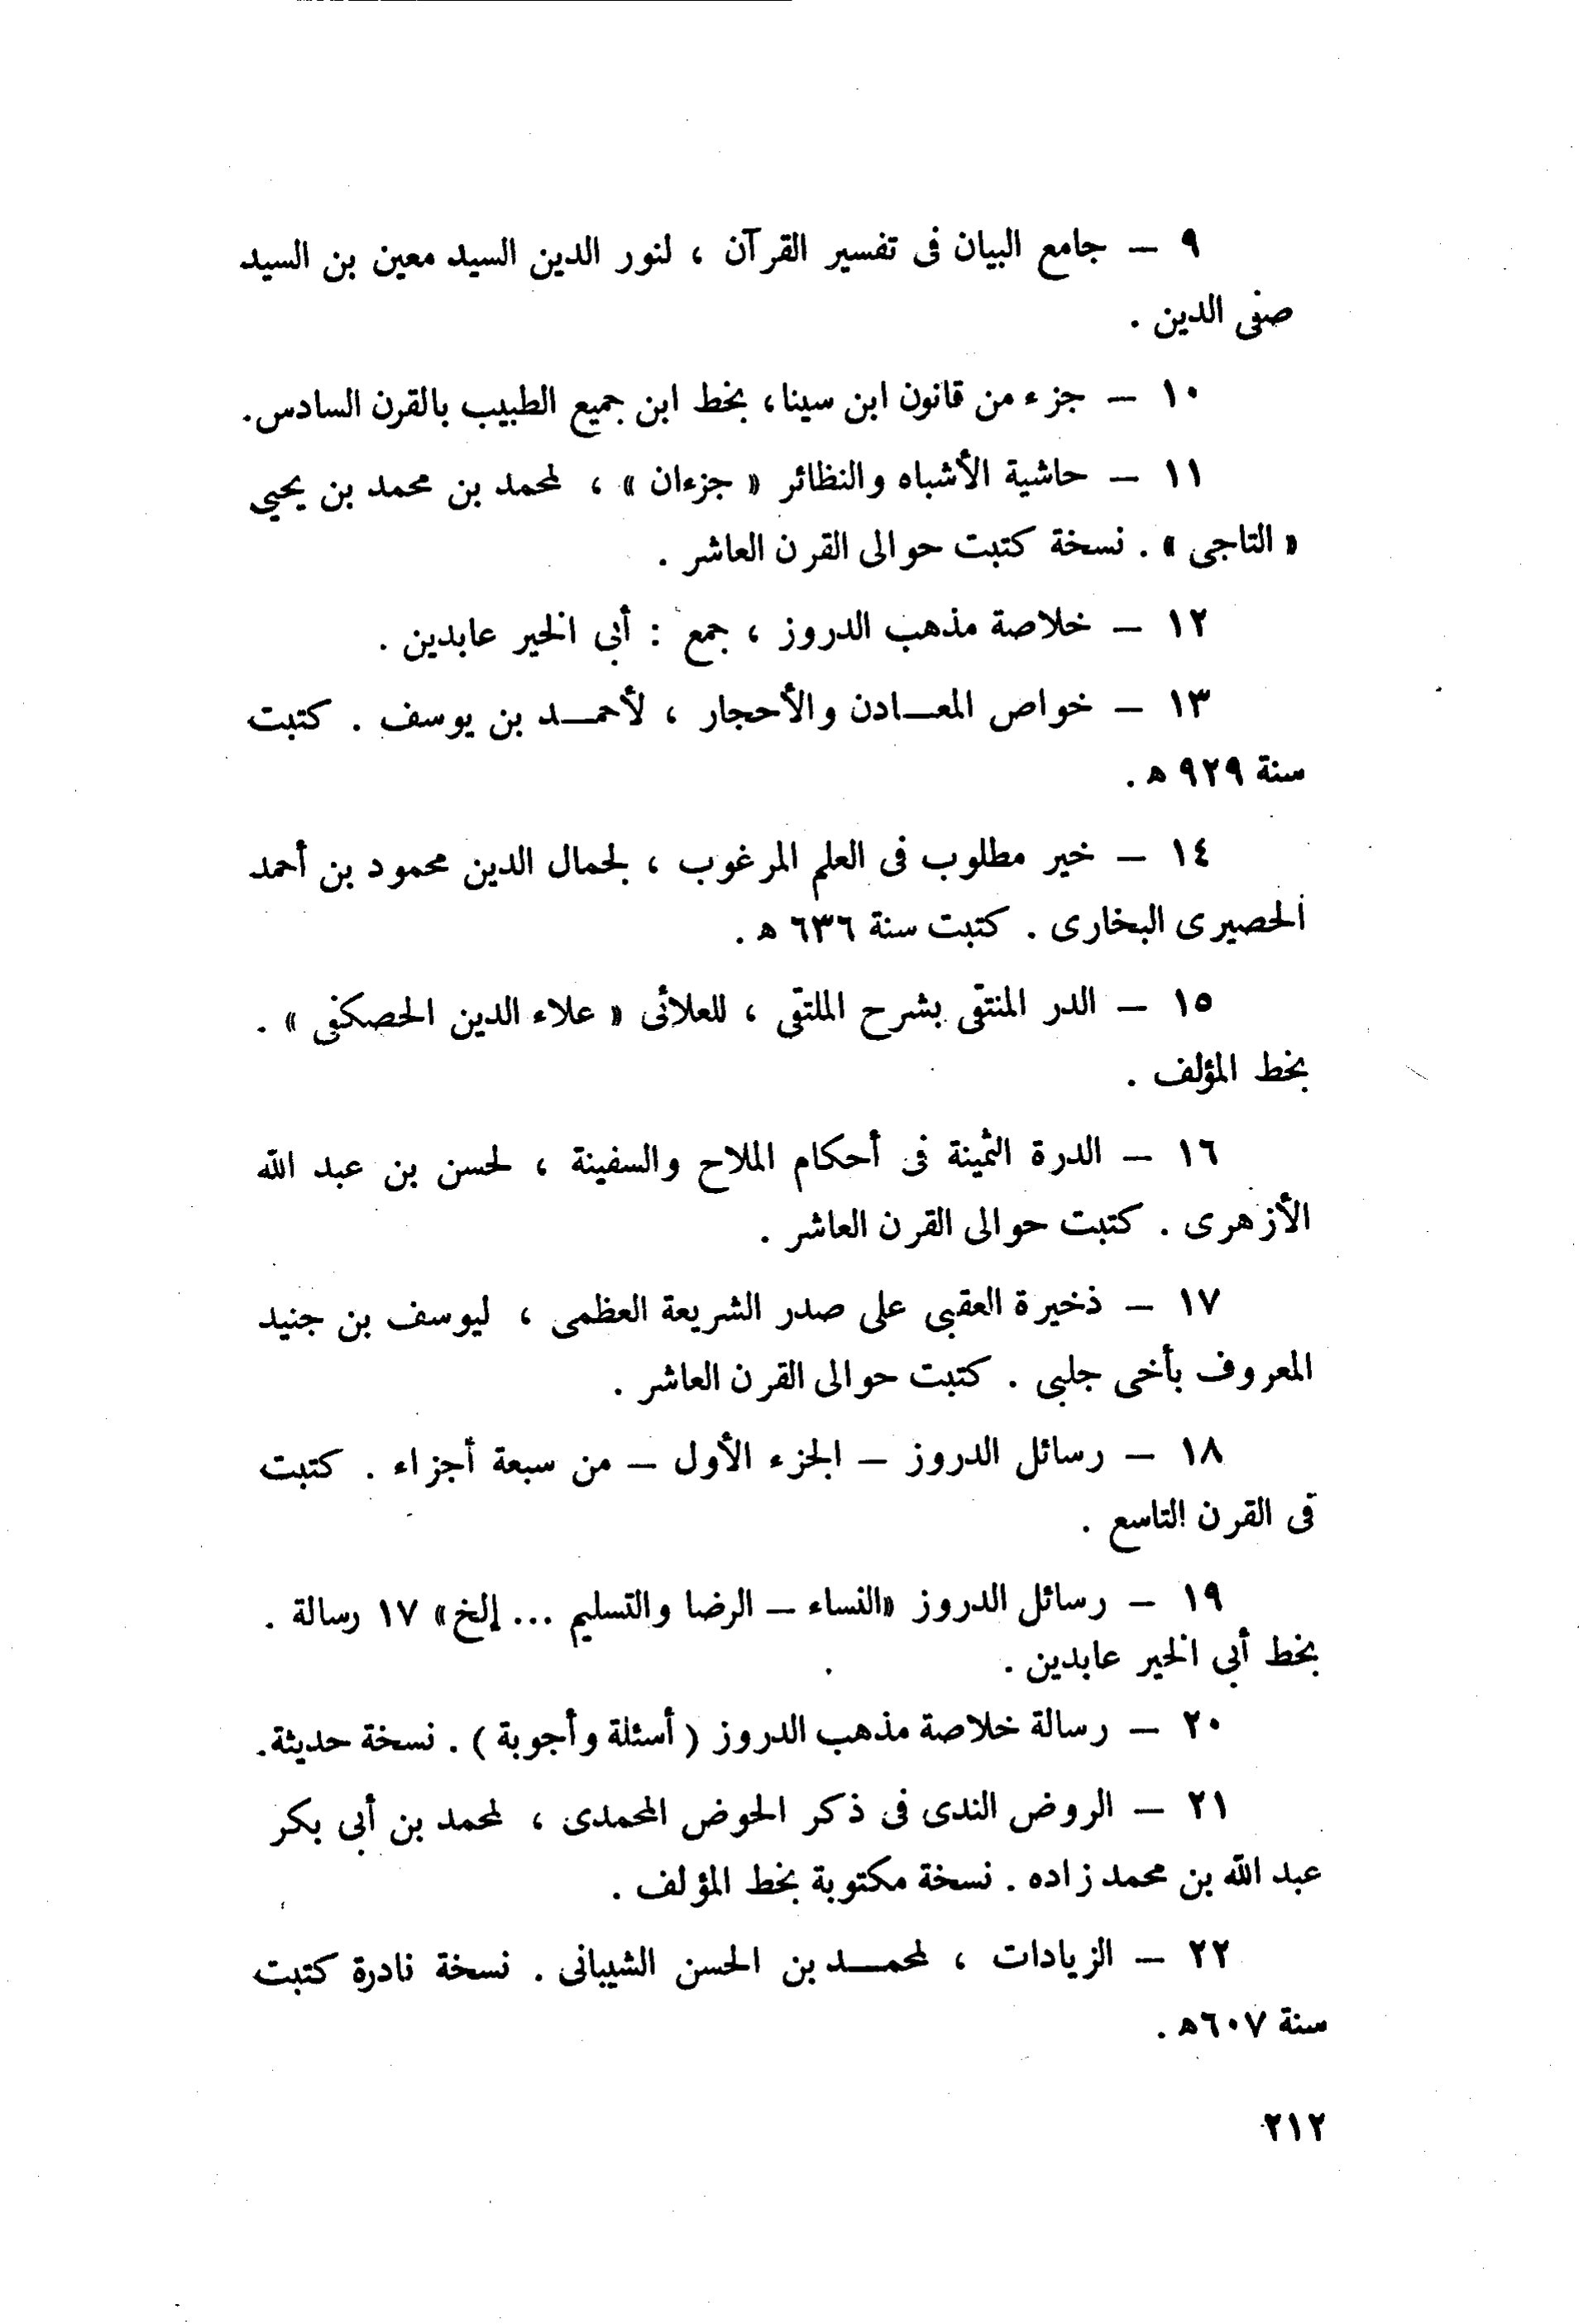 ٩ – جامع البيان فى تفسير القرآن ، لنور الدين السيد معين بن السيد
صفى الدين .
١٠ – جزء من قانون ابن سينا، بخط ابن جميع الطبيب بالقرن السادس.
١١ – حاشية الأشباه والنظائر « جزءان » ، لمحمد بن محمد بن يحيي
« التاجى » . نسخة كتبت حوالى القرن العاشر .
١٢ – خلاصة مذهب الدروز ، جمع : أبى الخير عابدين .
١٣ – خواص المعــادن والأحجار ، لأحمــد بن يوسف . كتبت
سنة ٩٢٩ ه .
١٤ – خير مطلوب فى العلم المرغوب ، لجمال الدين محمود بن أحمد
الحصيرى البخارى . كتبت سنة ٦٣٦ ه .
١٥ – الدر المنتقى بشرح الملتقى ، للعلائى « علاء الدين الحصكفى » .
بخط المؤلف .
١٦ – الدرة الثمينة فى أحكام الملاح والسفينة ، لحسن بن عبد الله
الأزهرى . كتبت حوالى القرن العاشر .
١٧ – ذخيرة العقبى على صدر الشريعة العظمى ، ليوسف بن جنيد
المعروف بأخى جلبى . كتبت حوالى القرن العاشر .
١٨ – رسائل الدروز – الجزء الأول – من سبعة أجزاء . كتبت
فى القرن التاسع .
١٩ – رسائل الدروز «النساء – الرضا والتسليم ... إلخ» ١٧ رسالة .
بخط أبى الخير عابدين .
٢٠ – رسالة خلاصة مذهب الدروز ( أسئلة وأجوبة ) . نسخة حديثة.
٢١ – الروض الندى فى ذكر الحوض المحمدى ، لمحمد بن أبى بكر
عبد الله بن محمد زاده . نسخة مكتوبة بخط المؤلف .
٢٢ – الزيادات ، لمحمــد بن الحسن الشيبانى . نسخة نادرة كتبت
سنة ٦٠٧ه .
٢١٢